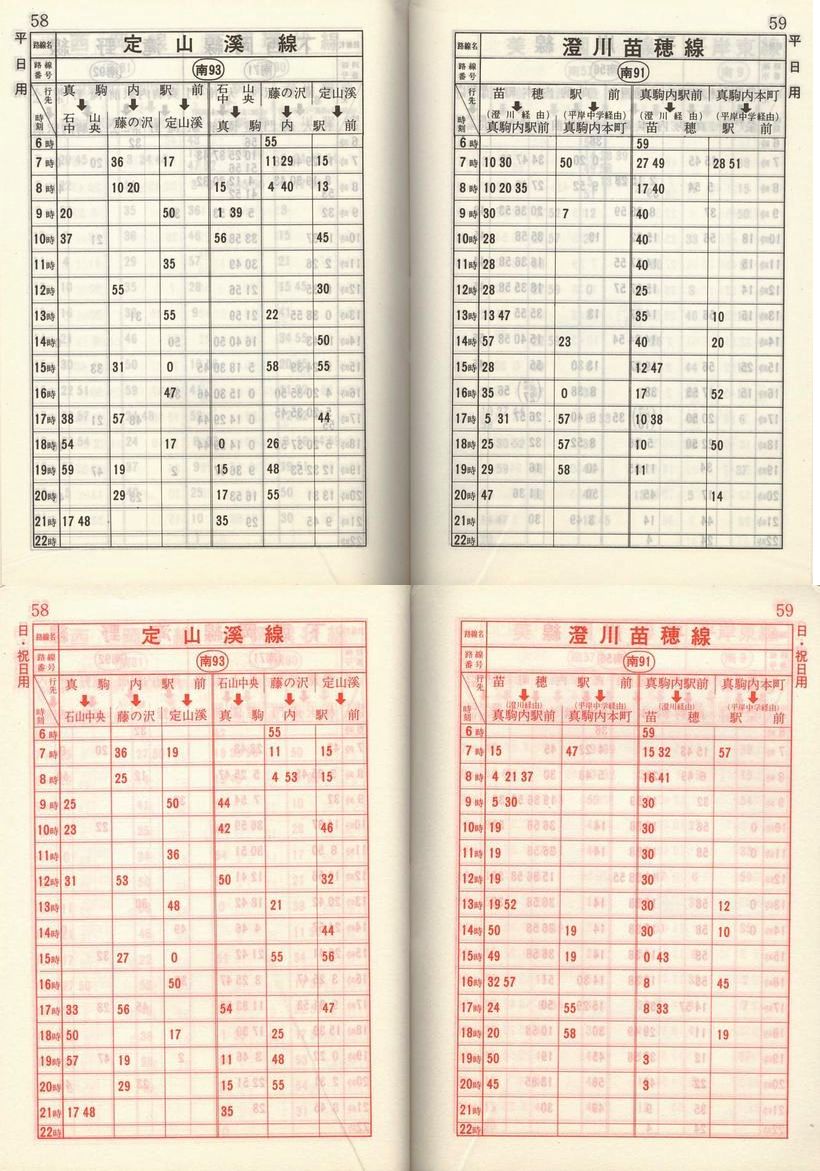 58
平日用
路線名 定山溪線
路線番号 南93
行先 真駒内駅前 石山中央 藤の沢 定山溪
時刻 石山中央 藤の沢 定山溪 真駒内駅前
6時 55
7時 36 17 11 29 15
8時 10 20 15 4 40 13
9時 20 50 1 39
10時 37 56 45
11時 35
12時 55 30
13時 55 22
14時 50
15時 31 0 58 55
16時 47
17時 38 57 44
18時 54 17 0 26
19時 59 19 15 48
20時 29 17 55
21時 17 48 35
22時
59
平日用
路線名 澄川苗穂線
路線番号 南91
行先 苗穂駅前 真駒内駅前 真駒内本町
(澄川経由) (平岸中学経由) (澄川経由) (平岸中学経由)
時刻 真駒内駅前 真駒内本町 苗穂駅前
6時 59
7時 10 30 50 27 49 28 51
8時 10 20 35 17 40
9時 30 7 40
10時 28 40
11時 28 40
12時 28 25
13時 13 47 35 10
14時 57 23 40 20
15時 28 12 47
16時 35 0 17 52
17時 5 31 57 10 38
18時 25 57 10 50
19時 29 58 11
20時 47 14
21時
22時
58
日・祝日用
路線名 定山溪線
路線番号 南93
行先 真駒内駅前 石山中央 藤の沢 定山溪
時刻 石山中央 藤の沢 定山溪 真駒内駅前
6時 55
7時 36 19 11 15
8時 25 4 53 15
9時 25 50 44
10時 23 42 46
11時 36
12時 31 53 50 32
13時 48 21
14時 44
15時 27 0 55 56
16時 50
17時 33 56 54 47
18時 50 17 25
19時 57 19 11 48
20時 29 15 55
21時 17 48 35
22時
59
日・祝日用
路線名 澄川苗穂線
路線番号 南91
行先 苗穂駅前 真駒内駅前 真駒内本町
(澄川経由) (平岸中学経由) (澄川経由) (平岸中学経由)
時刻 真駒内駅前 真駒内本町 苗穂駅前
6時 59
7時 15 47 15 32 57
8時 4 21 37 16 41
9時 5 30 30
10時 19 30
11時 19 30
12時 19 30
13時 19 52 30 12
14時 50 19 30 10
15時 49 19 0 43
16時 32 57 8 45
17時 24 55 8 33
18時 20 58 19
19時 50 3
20時 45 3
21時
22時